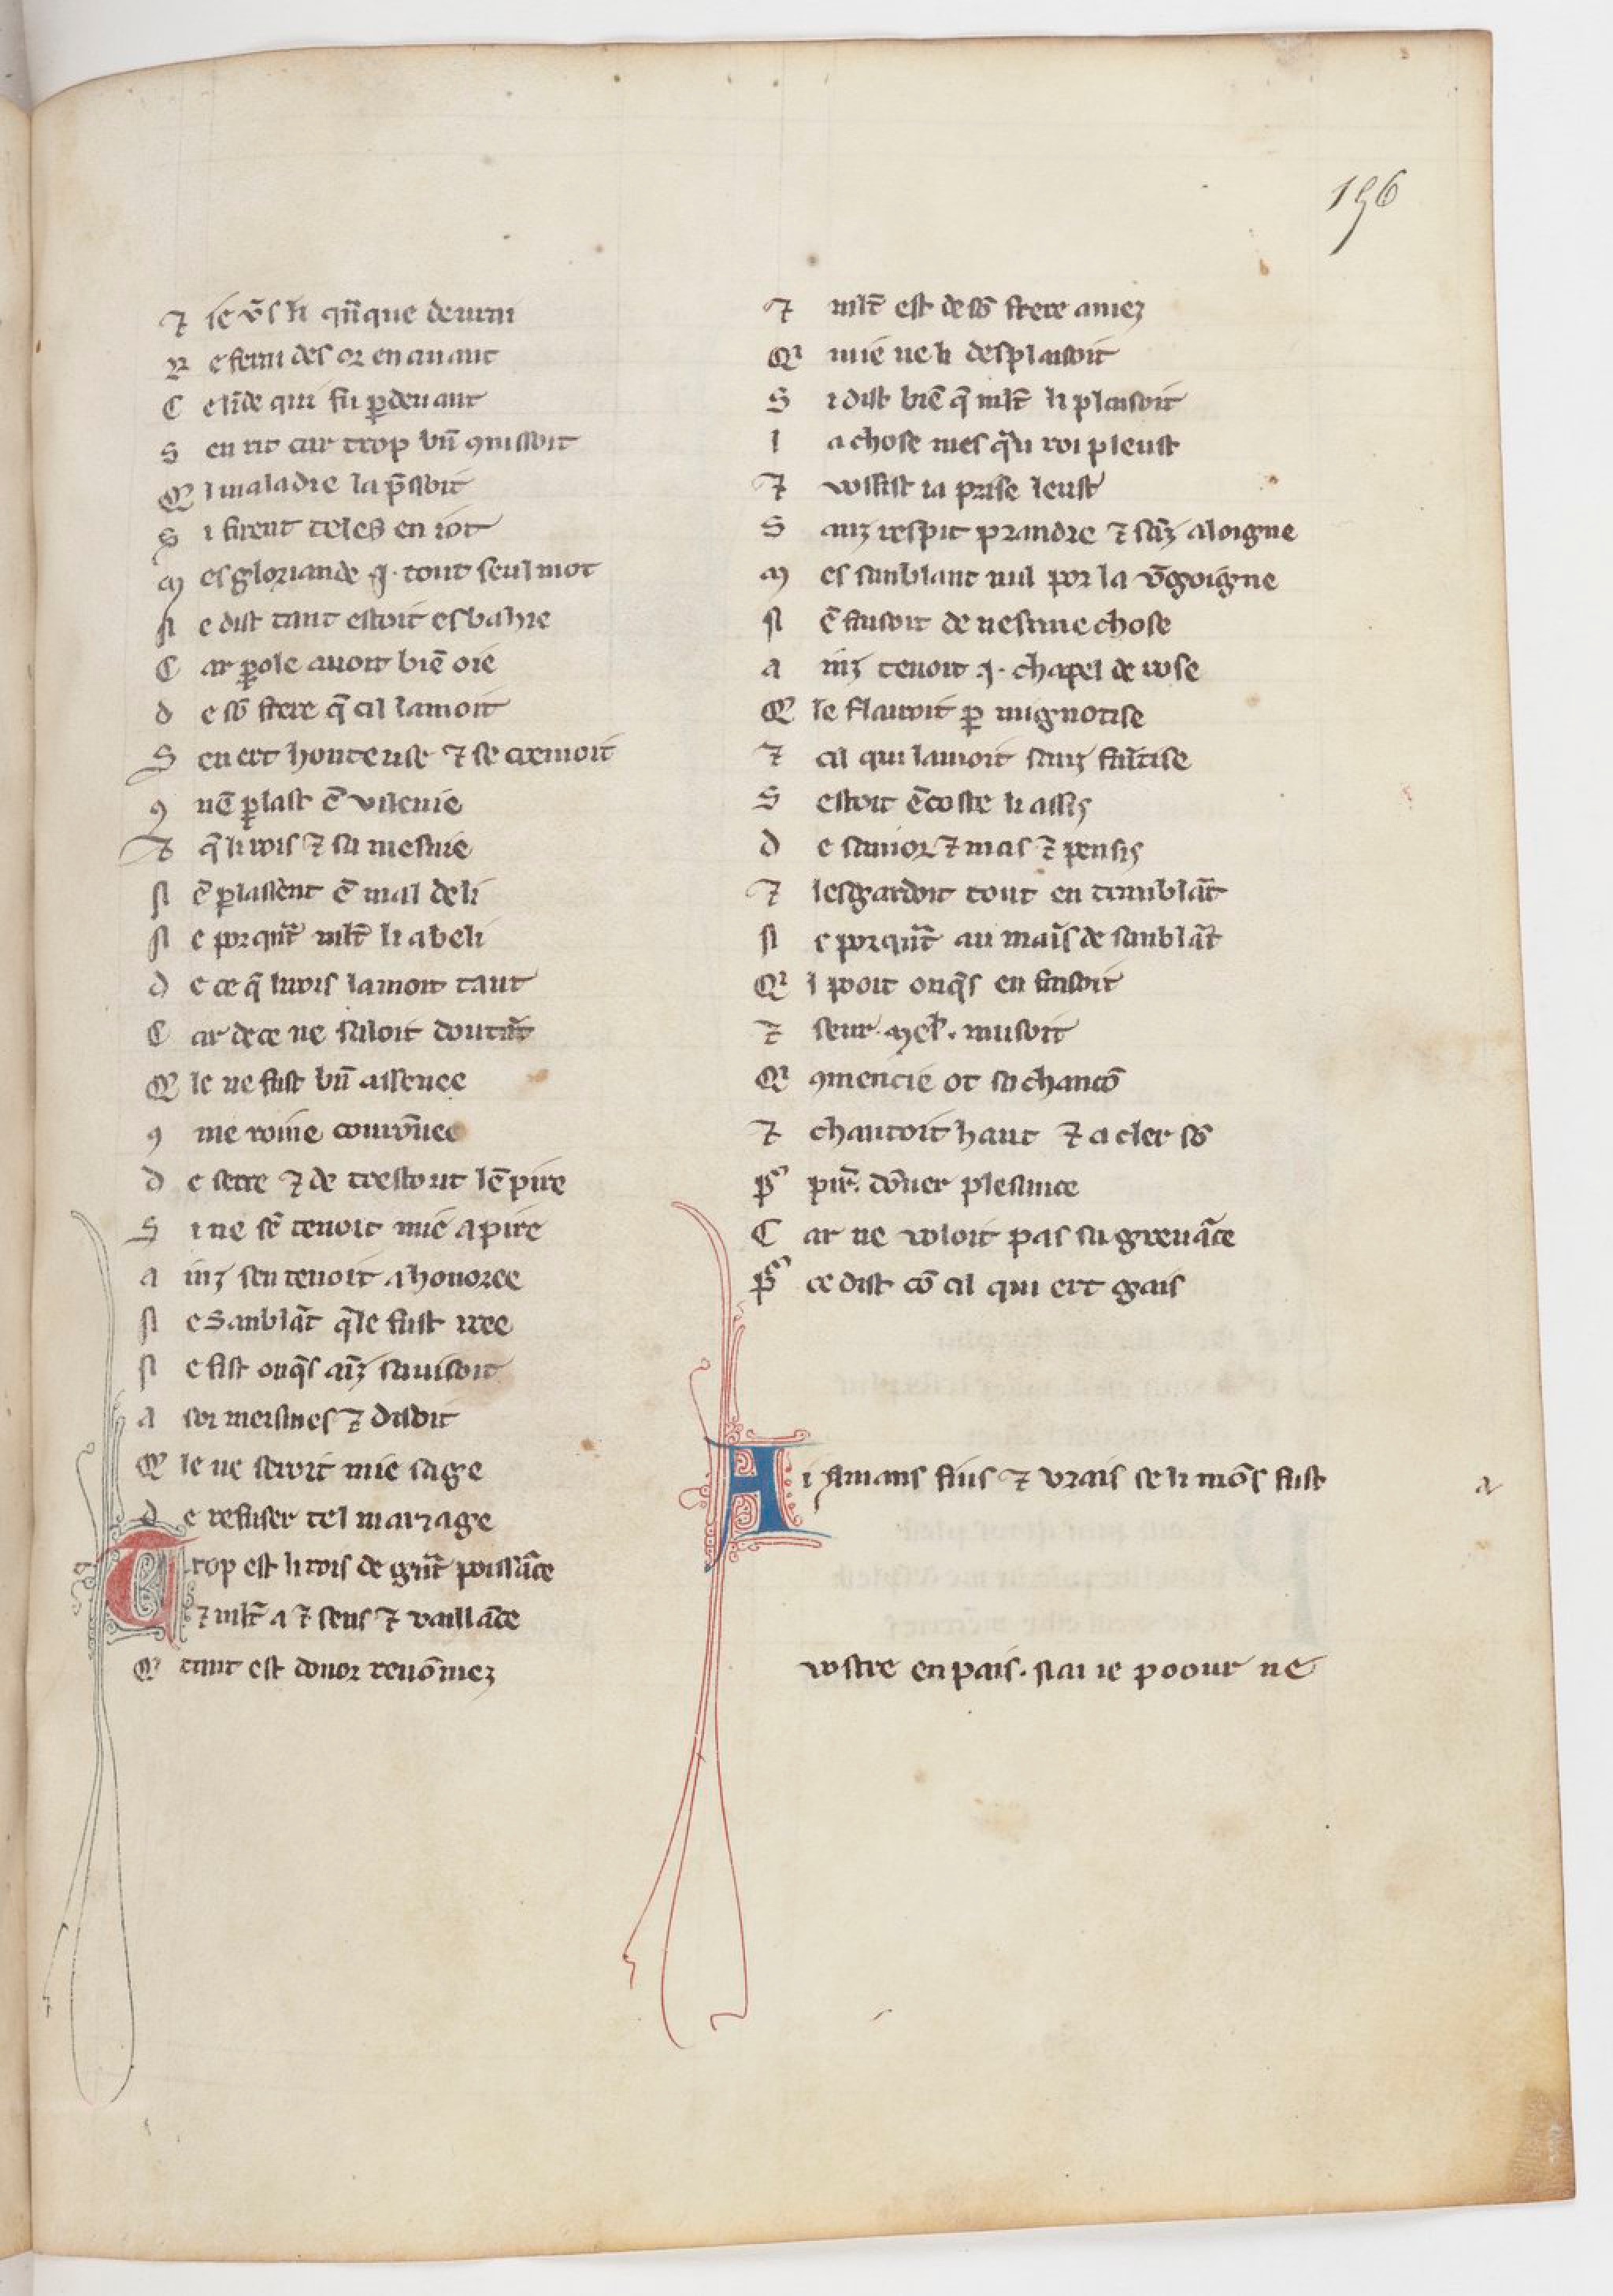 156
⁊ ie v̄s li qn̄que deurai
R e ferai des or en auant
C elīde qui fu ꝑdeuant
S en rit car trop bn̄ ꝯnissoit
Q l maladie la p̄ssoit
S i furent teles en iot
M es gloriande .j. tout seul mot
N e dist tant estoit esbahie
C ar ꝑole auoit biē oie
D e sō frere q̄ cil lamoit
S en ert honteuse ⁊ se cremoit
ꝯ nē ꝑlast ē vilenie
⁊ q̄ li rois ⁊ sa mesnie
N ē ꝑlassent ē mal de li
N e porqn̄t mlt̄ li abeli
D e ce q̄ li rois lamoit tant
C ar de ce ne saloit doutant
Q le ne fust bn̄ assenee
ꝯ me roine courōnee
D e terre ⁊ de trestout lēpire
S i ne sē tenoit mie a pire
A inz sen tenoit a honoree
N e sanblāt q̄le fust iree
N e fist onq̄s aīz sauisoit
A soi meismes ⁊ disoit
Q le ne seroit mie sage
D e refuser tel mariage
Trop est li rois de grāt poissāce
⁊ mlt̄ a ⁊ sens ⁊ vaillāce
Q tant est donor renōmez
⁊ mlt̄ est de sō frere amez
Q mie ne li desplaisoit
S i dist biē q̄ mlt̄ li plaisoit
l a chose mes q̄u roi pleust
⁊ vosist ia prise leust
S anz respit prandre ⁊ sāz aloigne
M es sanblant nul por la v̄goigne
N ē faisoit de nesune chose
A inz tenoit .j. chapel de rose
Q le flairoit ꝑ mignotise
⁊ cil qui lamoit sanz faītise
S estoit ēcoste li assis
D e samor ⁊ mas ⁊ pensis
⁊ lesgardoit tout en tranblāt
N e porqāt au maīs de sanblāt
Q l pooit onq̄s en faisoit
⁊ seur mel̄. musoit
Q ꝯmencie ot sa chancō
⁊ chantoit haut ⁊ a cler sō
P pir̄. dōner plesance
C ar ne voloit pas sa greuāce
P ce dist cō cil qui ert gais
Ai amans fins ⁊ vrais se li mōs fust
a
vostre en pais. nai ie poour ne